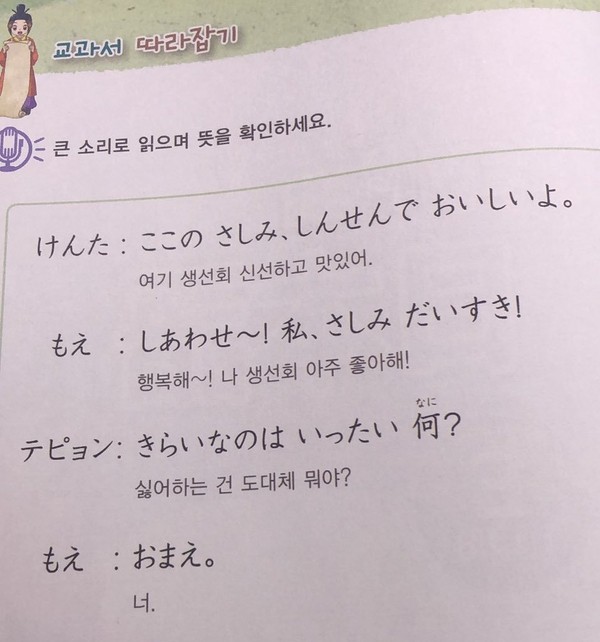 교과서 따라잡기
큰 소리로 읽으며 뜻을 확인하세요.
けんた : ここの さしみ、しんせんで おいしいよ。
여기 생선회 신선하고 맛있어.
もえ : しあわせ～! 私、さしみ だいすき!
행복해～! 나 생선회 아주 좋아해!
なに
テピョン: きらいなのは いったい 何?
싫어하는 건 도대체 뭐야?
もえ : おまえ。
너.